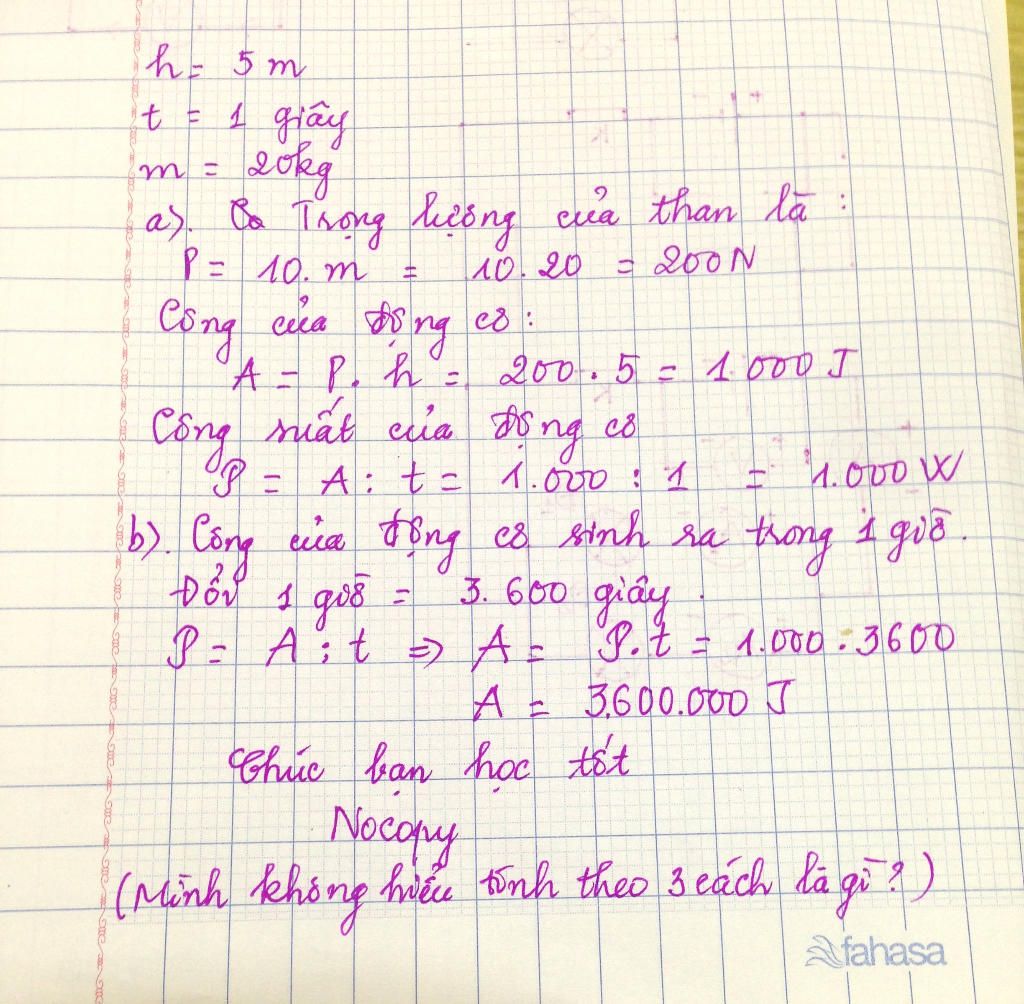 h = 5 m
t = 1 giây
m = 20kg
a). Trọng lượng của than là :
P = 10. m = 10.20 = 200N
Công của động cơ :
A = P. h = 200 . 5 = 1.000 J
Công suất của động cơ
P = A : t = 1.000 : 1 = 1.000 W
b). Công của động cơ sinh ra trong 1 giờ.
Đổi 1 giờ = 3.600 giây.
P = A : t => A = P.t = 1.000 . 3600
A = 3.600.000 J
Chúc bạn học tốt
Nocopy
(Mình không hiểu tính theo 3 cách là gì ? )
fahasa